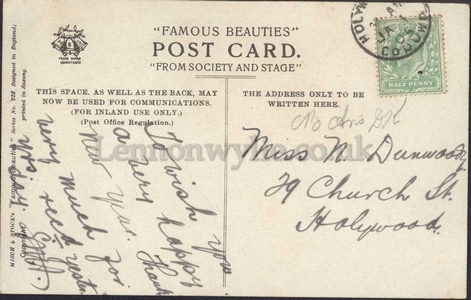 "FAMOUS BEAUTIES"
POST CARD.
"FROM SOCIETY AND STAGE"
THIS SPACE, AS WELL AS THE BACK, MAY
NOW BE USED FOR COMMUNICATIONS.
(FOR INLAND USE ONLY.)
(Post Office Regulation.)
THE ADDRESS ONLY TO BE
WRITTEN HERE.
HOLYWOOD
CO. DOWN
HALF PENNY
Lennonwylie.co.uk
To wish you
a very happy
New Year. Thanks
very much for
yesterday
Miss N. Dunwoody
29 Church St.
Holywood.
TRADE MARK